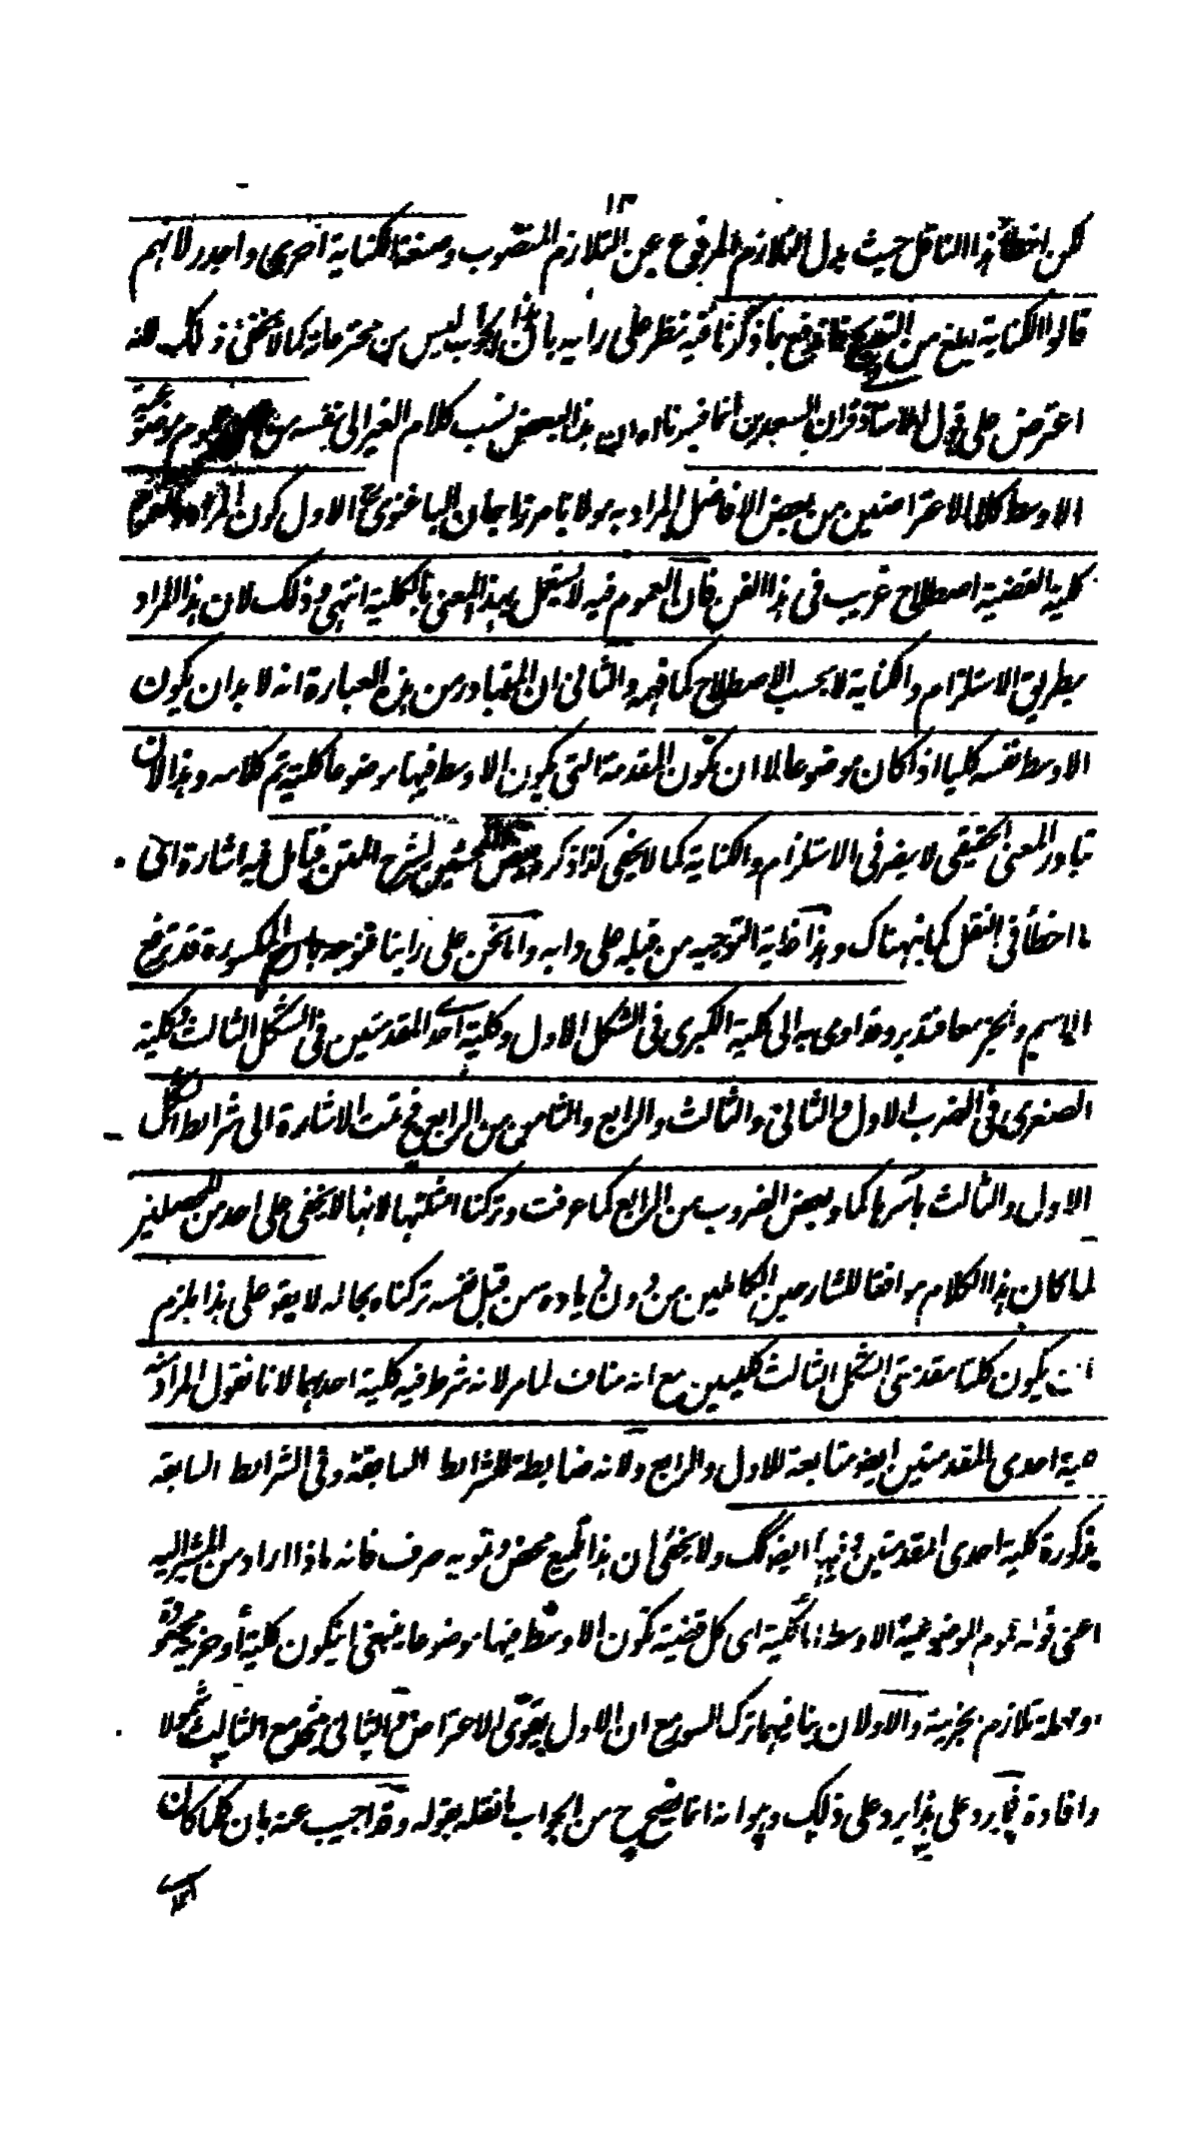 ١٣
لكن اخطأ هذا الناقل حيث بدل التلازم المرفوع عن التلازم المنصوب وصنعة الكناية احرى واجدر لانهم
قالوا الكناية ابلغ من التصريح فاندفع بما ذكرنا فيه نظر على رأيه بان الجواب ليس من مخترعاته كما لا يخفى ذلك لانه
اعترض على قول الاستاذ وقران السعدين انما فسرناه ان هذا البعض نسب كلام الغير الى نفسه من عموم موضوعية
الاوسط كلا الاعتراضين من بعض الافاضل المراد به مولانا مرزا جان الباغنوى الاول كون المراد بالعموم
كلية القضية اصطلاح غريب فى هذا الفن فان العموم فيه لا يستعمل بهذا المعنى بالكلية انتهى وذلك لان هذا المراد
بطريق الاستلزام والكناية لا بحسب الاصطلاح كما فهم والثانى ان المتبادر من هذه العبارة انه لا بد ان يكون
الاوسط نفسه كليا اذا كان موضوعا لا ان تكون المقدمة التى يكون الاوسط فيها موضوعا كلية تم كلامه وهذا لان
تبادر المعنى الحقيقى لا يضر فى الاستلزام والكناية كما لا يخفى كذا ذكره بعض محشين لشرح المتن فتأمل فيه اشارة الى
ما اخطأ فى النقل كما بنهناك وهذا غاية التوجيه من قبله على دابه واما نحن على راينا فتوجه بان المكسورة قد ترفع
الاسم والخبر معا فتدبر وهو ادى به الى كلية الكبرى فى الشكل الاول وكلية احدى المقدمتين فى الشكل الثالث وكلية
الصغرى فى الضرب الاول والثانى والثالث والرابع والثامن من الرابع فح تمت الاشارة الى شرائط الشكل
الاول والثالث باسرها كما وبعض الضروب من الرابع كما عرفت وتركنا امثلتها لانها لا يخفى على احد من المحصلين
لما كان هذا الكلام موافقا للشارحين الكاملين من دون زيادة من قبل نفسه تركناه بحاله لا يقو على هذا يلزم
ان يكون كلتا مقدمتى الشكل الثالث كليتين مع انه مناف لما مر لانه شرط فيه كلية احدهما لانا نقول المراد منه
كلية احدى المقدمتين ايضه متابعة للاول والرابع ولانه ضابطة للشرائط السابقة وفى الشرائط السابقة
مذكورة كلية احدى المقدمتين وفيها ايضه كك ولا يخفى ان هذا تلميع محض وتمويه صرف فانه ماذا اراد من المشار اليه
اعنى قوله عموم الموضوعية الاوسط اما كلية اى كل قضية تكون الاوسط فيها موضوعا ينبغى ان يكون كلية أو جزئية محتوة
ومهملة تلازم جزئية والاولان ينافيهما ترك السور مع ان الاول يقوى الاعتراض والثانى متحد مع الثالث شمولا
وافادة فما يرد على هذا يرد على ذلك وهو انه انما يضح ح من الجواب ما نقله بقوله وقد اجيب عنه بان كلما كان